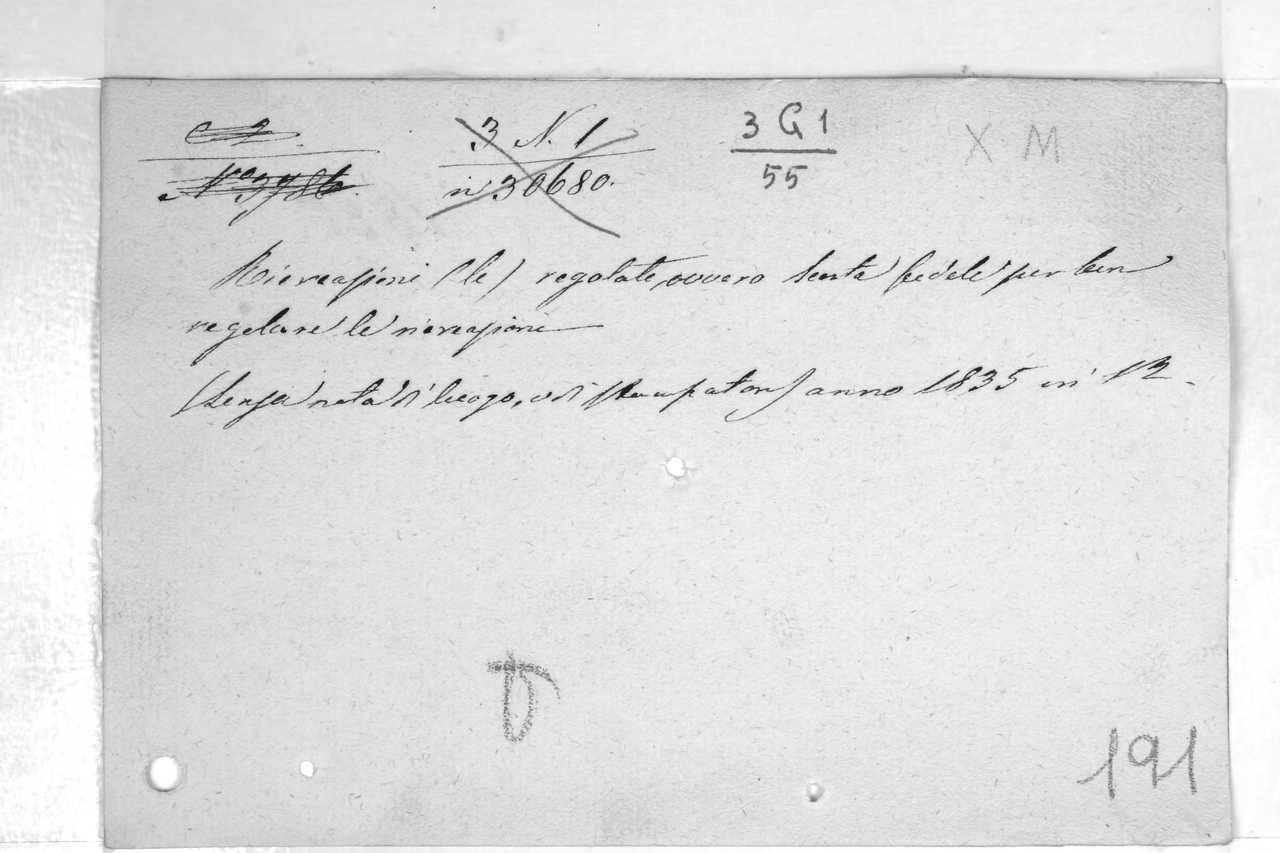 C 2. 3 N. 1 3 G 1 X M
N.º 3786. n° 30680. 55
Ricreazioni (le) regolate, ovvero scorta fedele per ben
regolare le ricreazioni
(Senza nota di luogo, e di stampatore) anno 1835 in 12.
191